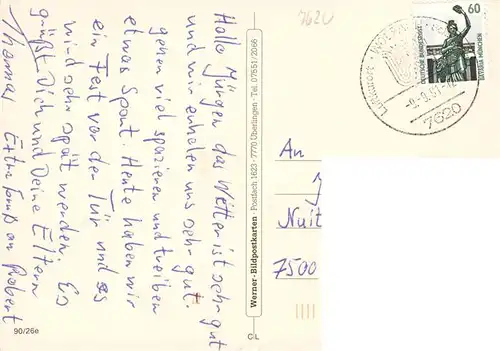 Hallo Jürgen das Wetter ist sehr gut
und wir erholen uns sehr gut.
gehen viel spazieren und treiben
etwas Sport. Heute haben wir
ein Fest vor der Tür und es
wird sehr spät werden. Es
grüßt Dich und Deine Eltern
Thomas Extra Gruß an Robert
90/26e
Werner-Bildpostkarten · Postfach 1623 · 7770 Überlingen · Tel. 07551/2066
C/L
7620
60
DEUTSCHE BUNDESPOST
BAVARIA MÜNCHEN
Luftkurort
7620
An
J
Nuit
7500